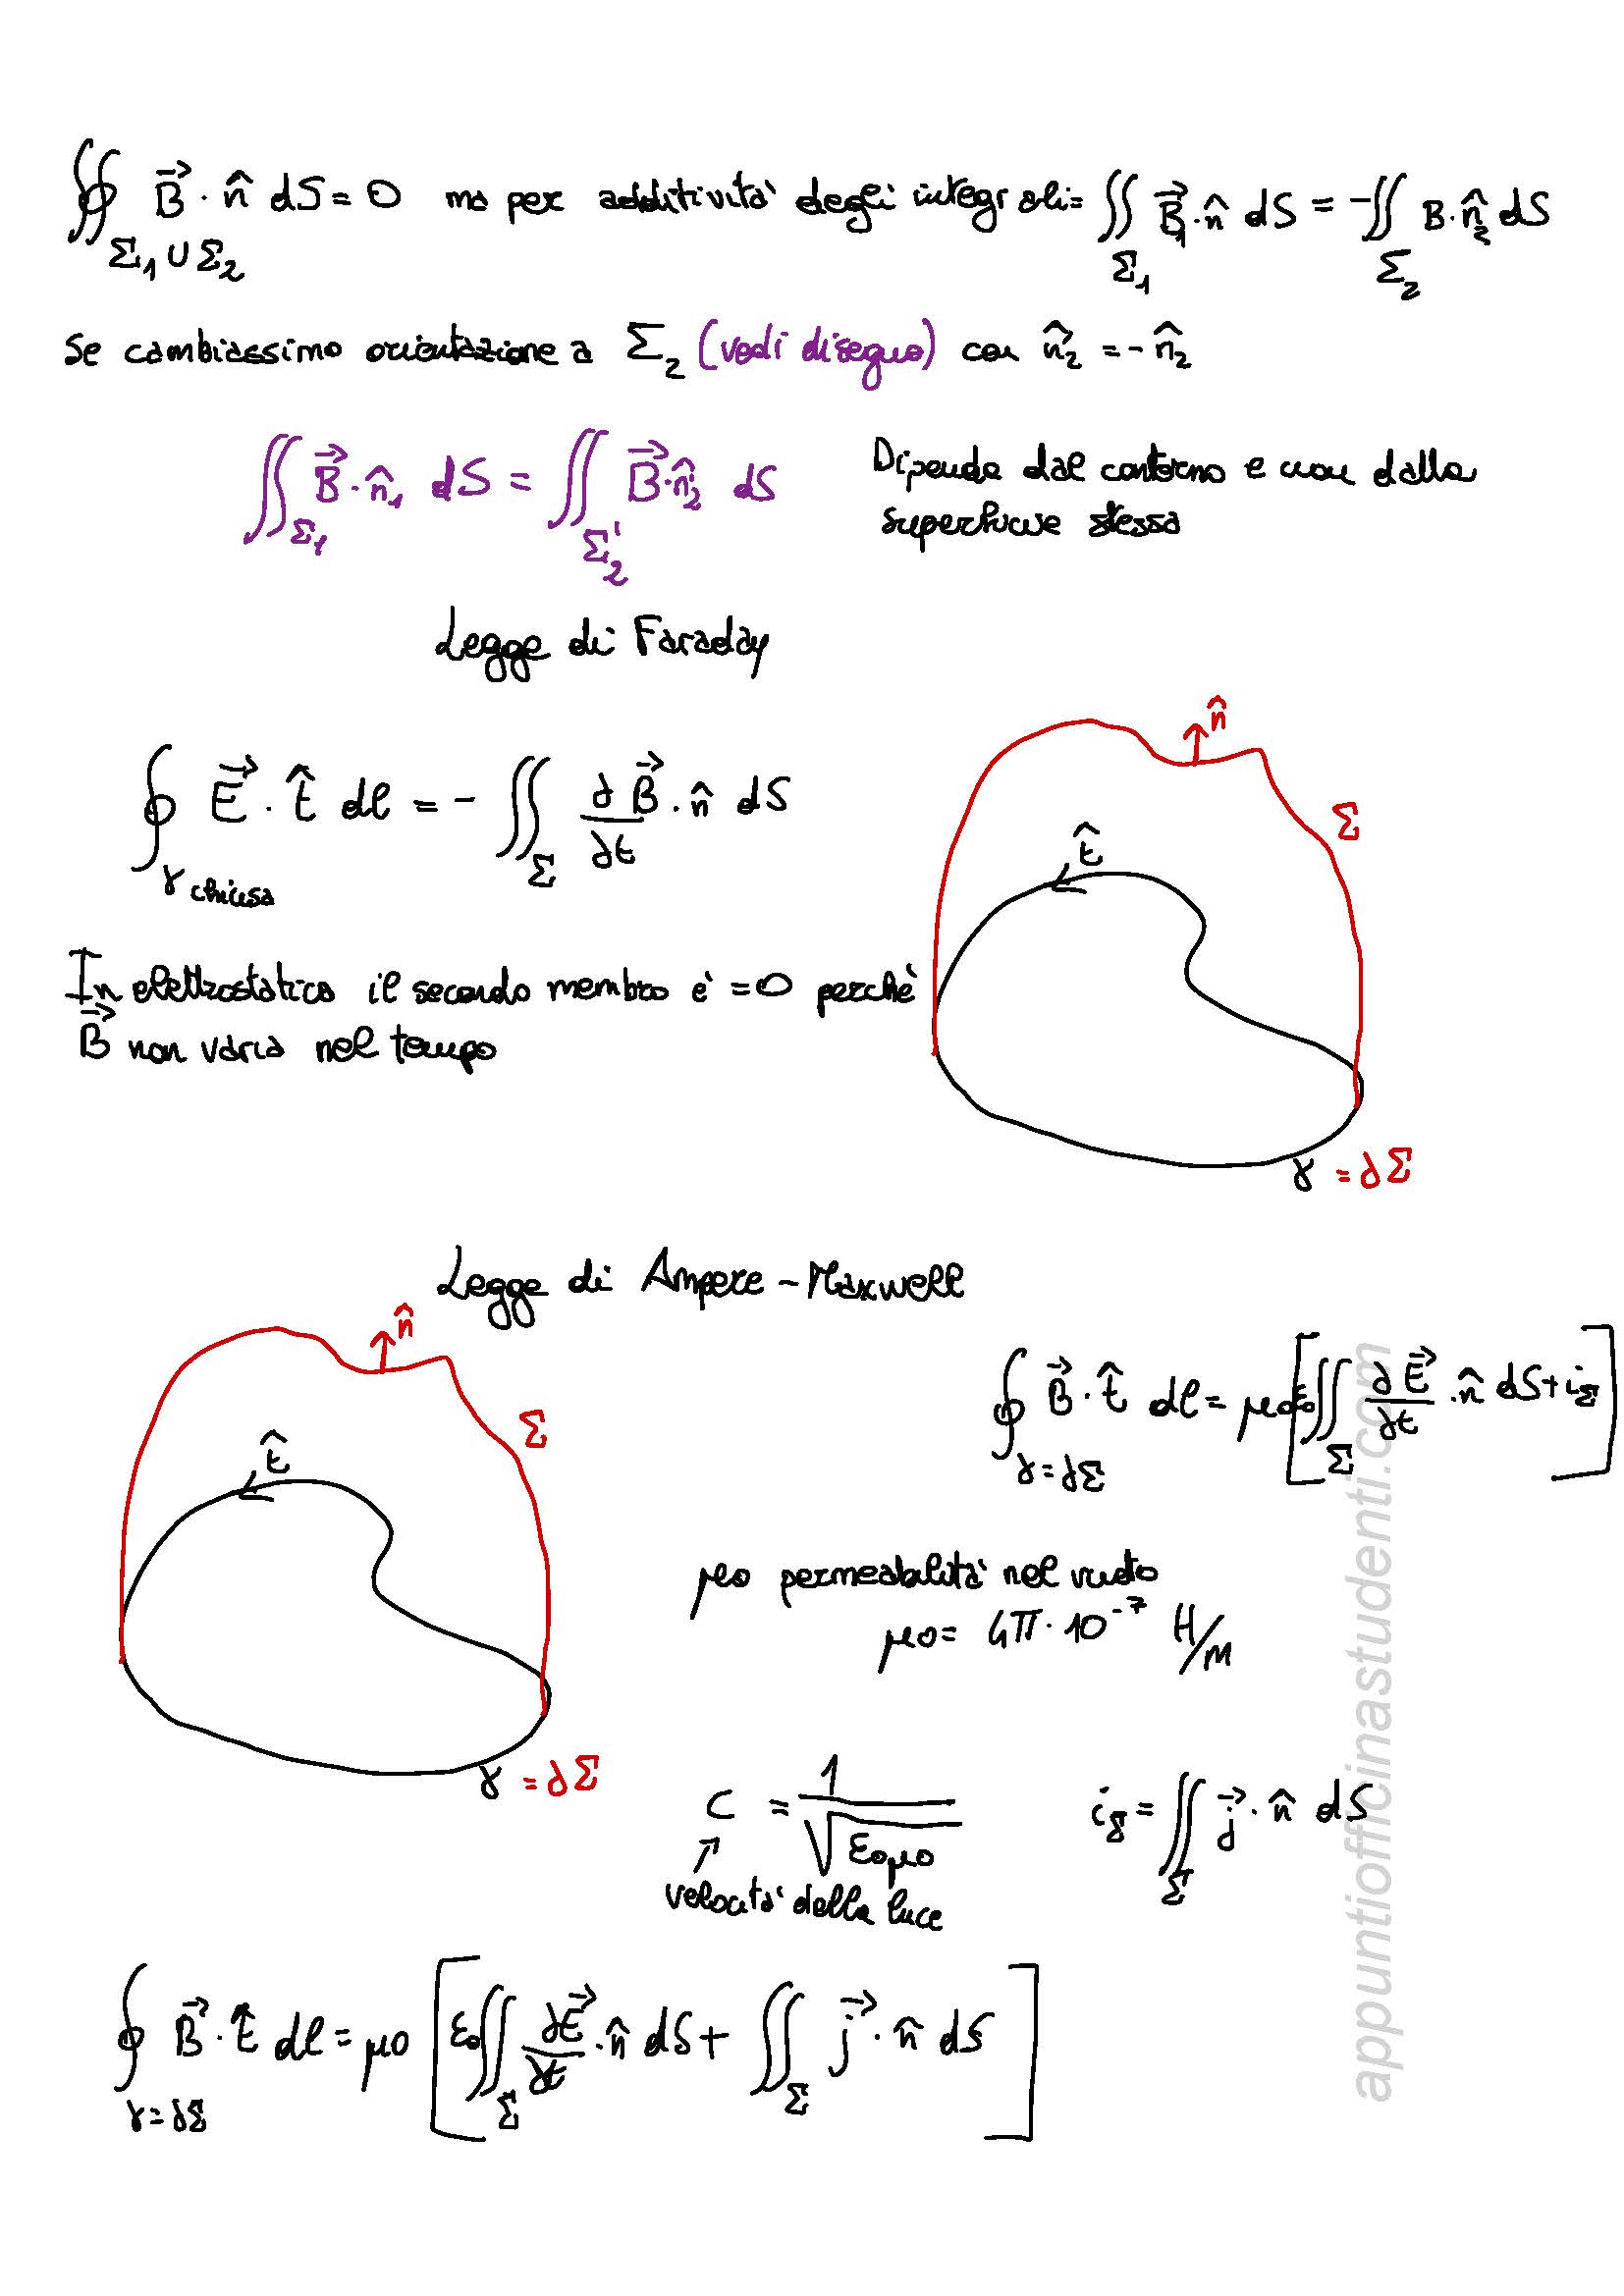 ∯_{Σ₁∪Σ₂} B⃗ · n̂ dS = 0 ma per additività degli integrali= ∬_{Σ₁} B⃗ · n̂₁ dS = -∬_{Σ₂} B · n̂₂ dS
Se cambiassimo orientazione a Σ₂ (vedi disegno) con n̂₂' = - n̂₂
∬_{Σ₁} B⃗ · n̂₁ dS = ∬_{Σ₂'} B⃗ · n̂₂' dS
Dipende dal contorno e non dalla
superficie stessa
Legge di Faraday
n̂
∮_{γ chiusa} E⃗ · t̂ dl = - ∬_Σ ∂B⃗/∂t · n̂ dS
Σ
t̂
In elettrostatica il secondo membro è = 0 perchè
B⃗ non varia nel tempo
γ = ∂Σ
Legge di Ampere - Maxwell
n̂
Σ
t̂
γ = ∂Σ
∮_{γ=∂Σ} B⃗ · t̂ dl = μ₀ [ε₀ ∬_Σ ∂E⃗/∂t · n̂ dS + i_Σ]
μ₀ permeabilità nel vuoto
μ₀ = 4π · 10⁻⁷ H/m
c = 1/√(ε₀μ₀)
velocità della luce
i_Σ = ∬_Σ j⃗ · n̂ dS
∮_{γ=∂Σ} B⃗ · t̂ dl = μ₀ [ε₀ ∬_Σ ∂E⃗/∂t · n̂ dS + ∬_Σ j⃗ · n̂ dS]
appuntiofficinastudenti.com